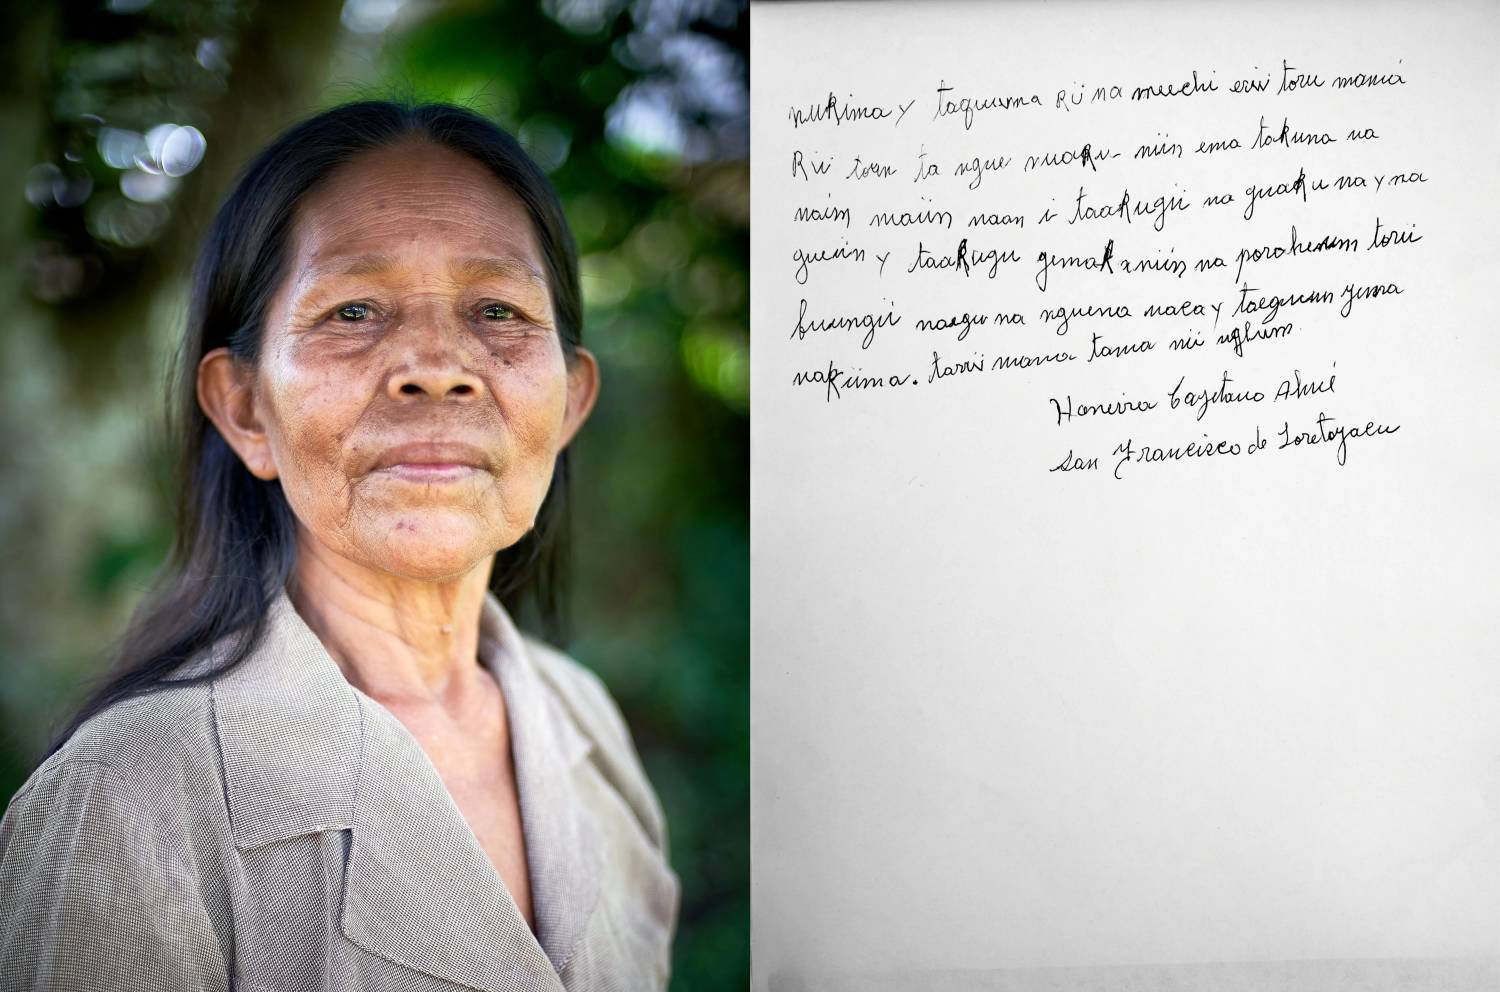 nukima y taquuma Rü na meechi erü toru mamá
Rü toan ta ngue nuaRu- niin ema takuna na
naim maiin naan i taaRugü na guaRu na y na
gueiin y taaRugu gemaR niin na porahexum torü
buxngü naegu na nguena naca y taeguxun yema
naküma. tarü mama tama nü nghüm.
Haneira Cayetano Ahué
San Francisco de Loretoyacu